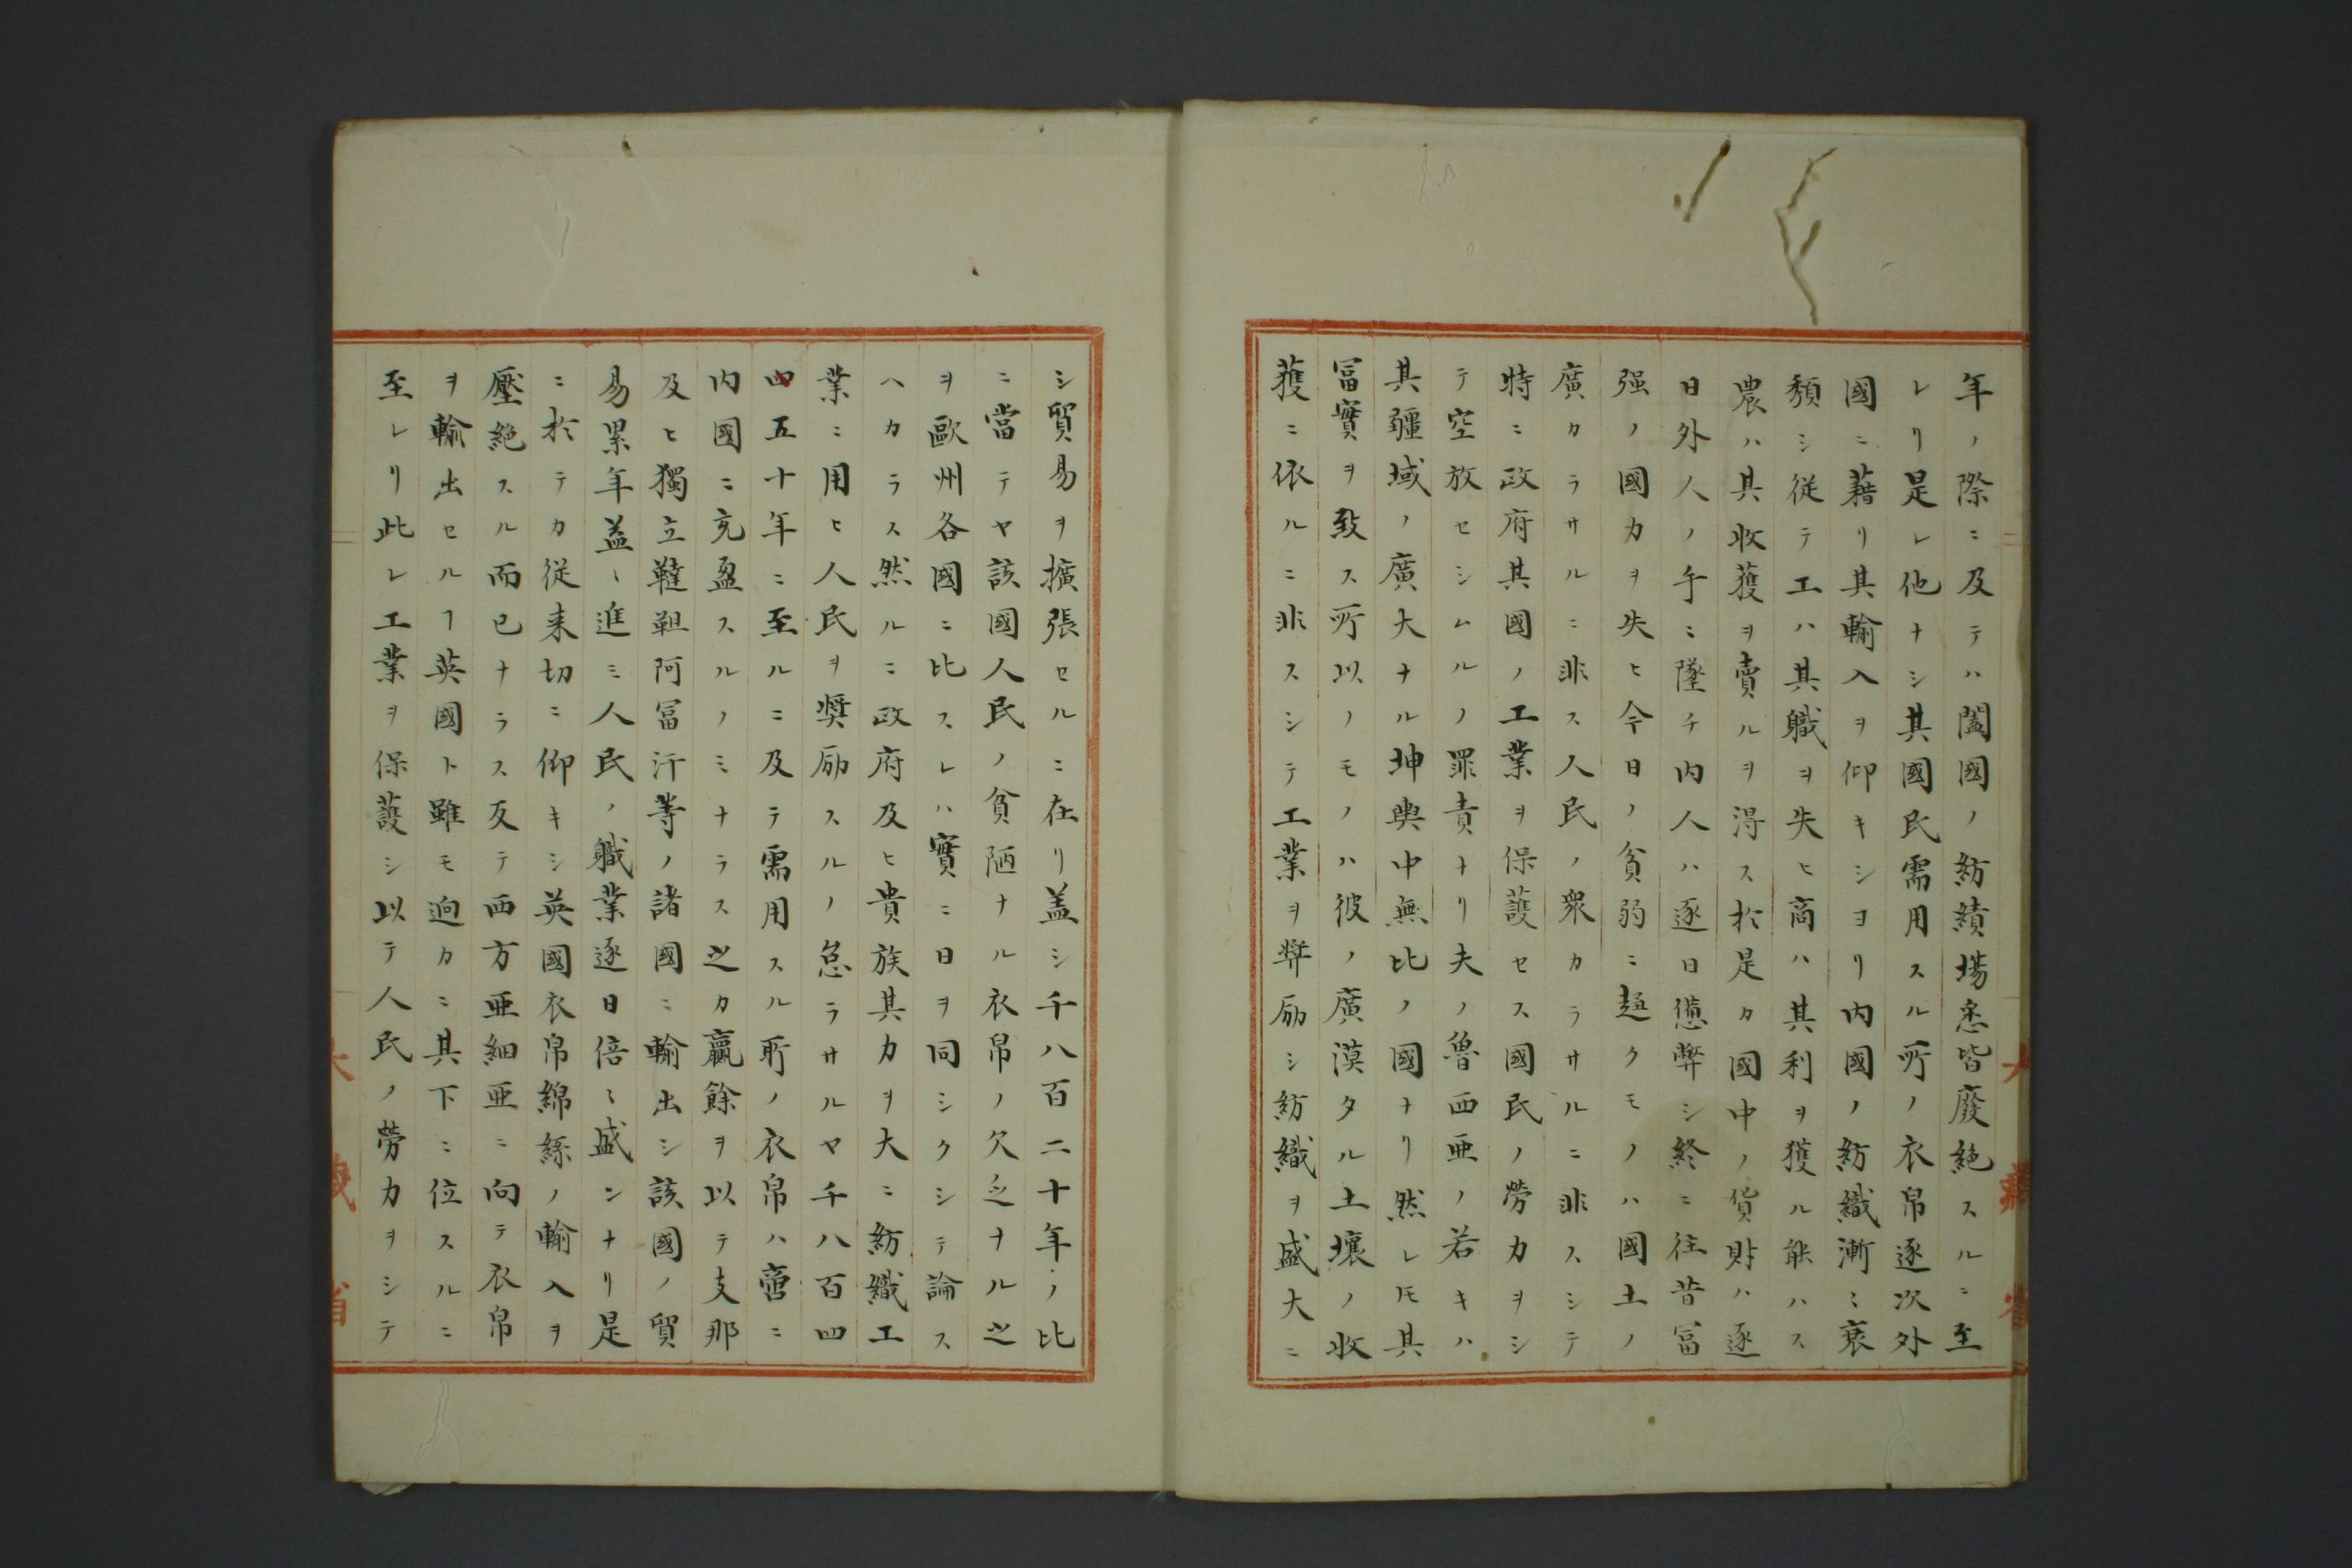 年ノ際ニ及テハ闔國ノ紡績場悉皆廢絶スルニ至
レリ是レ他ナシ其國民需用スル所ノ衣帛逐次外
國ニ藉リ其輸入ヲ仰キシヨリ内國ノ紡織漸〻衰
頽シ従テ工ハ其職ヲ失ヒ商ハ其利ヲ獲ル能ハス
農ハ其收獲ヲ賣ルヲ得ス於是カ國中ノ貨財ハ逐
日外人ノ手ニ墜チ内人ハ逐日憊弊シ終ニ往昔冨
强ノ國力ヲ失ヒ今日ノ貧弱ニ趨クモノハ國土ノ
廣カラサルニ非ス人民ノ衆カラサルニ非スシテ
特ニ政府其國ノ工業ヲ保護セス國民ノ勞力ヲシ
テ空放セシムルノ罪責ナリ夫ノ魯西亜ノ若キハ
其疆域ノ廣大ナル坤輿中無比ノ國ナリ然レ𪜈其
冨實ヲ致ス所以ノモノハ彼ノ廣漠タル土壤ノ收
獲ニ依ルニ非スシテ工業ヲ奨励シ紡織ヲ盛大ニ
シ貿易ヲ擴張セルニ在リ盖シ千八百二十年ノ比
ニ當テヤ該國人民ノ貧陋ナル衣帛ノ欠乏ナル之
ヲ歐州各國ニ比スレハ實ニ日ヲ同シクシテ論ス
ヘカラス然ルニ政府及ヒ貴族其力ヲ大ニ紡織工
業ニ用ヒ人民ヲ奨励スルノ怠ラサルヤ千八百四
四五十年ニ至ルニ及テ需用スル所ノ衣帛ハ啻ニ
内國ニ充盈スルノミナラス之カ贏餘ヲ以テ支那
及ヒ獨立韃靼阿冨汗等ノ諸國ニ輸出シ該國ノ貿
易累年益〻進ミ人民ノ職業逐日倍〻盛ンナリ是
ニ於テカ従来切ニ仰キシ英國衣帛綿絲ノ輸入ヲ
壓絶スル而已ナラス反テ西方亜細亜ニ向テ衣帛
ヲ輸出セルヿ英國ト雖モ逈カニ其下ニ位スルニ
至レリ此レ工業ヲ保護シ以テ人民ノ勞力ヲシテ